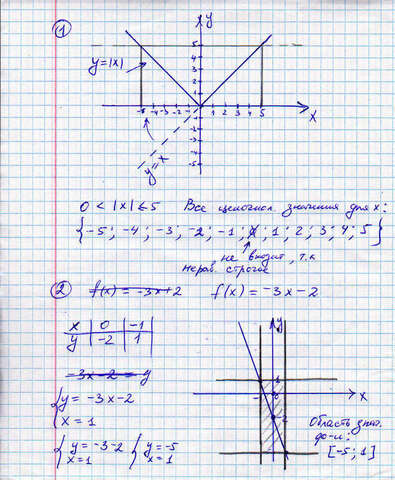 ①
y
5
4
3
2
1
y=|x|
-5 -4 -3 -2 -1 0 1 2 3 4 5 x
-1
-2
-3
-4
-5
y=x
0 < |x| ≤ 5 Все целочисл. значения для x:
{-5; -4; -3; -2; -1; 0; 1; 2; 3; 4; 5}
не входит, т.к
нерав. строгое
② f(x) = -3x+2 f(x) = -3x-2
x | 0 | -1
y | -2 | 1
-3x-2 = y
{y = -3x-2
x = 1
{y = -3-2
x = 1
{y = -5
x = 1
y
x
-2
Область знач.
ф-и:
[-5; 1]